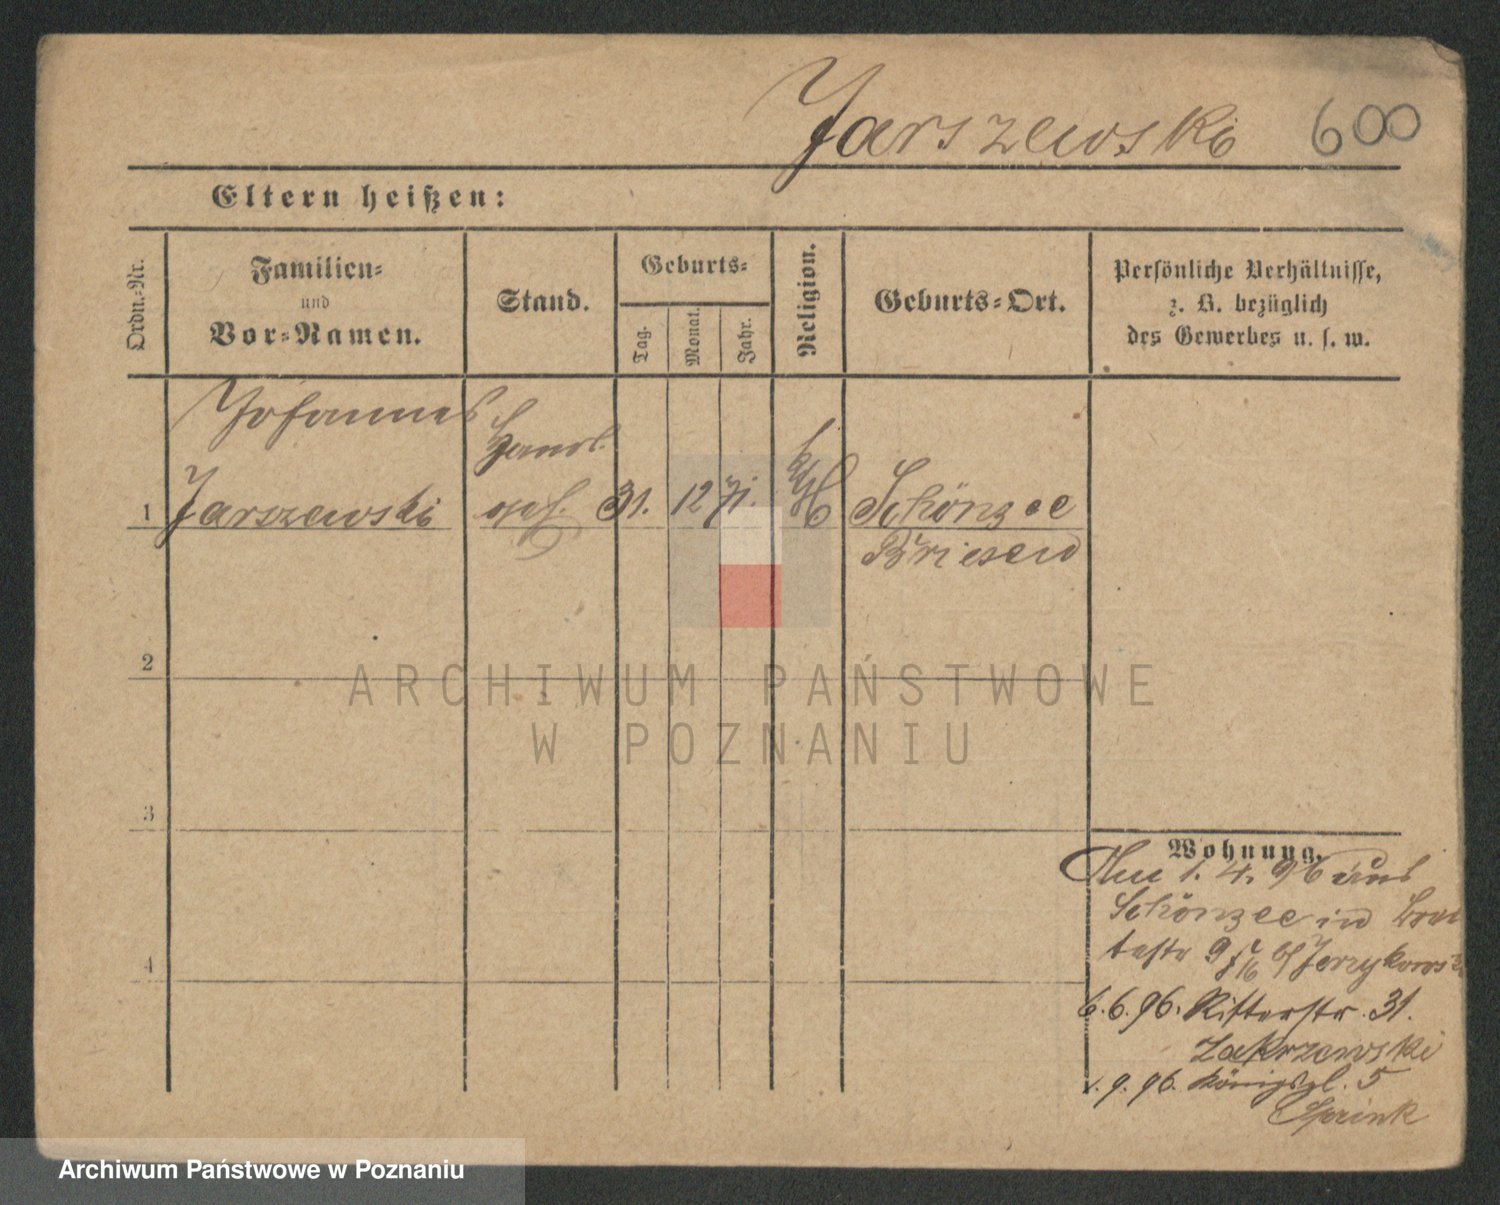 Jarszewski 600
Eltern heißen:
Ordn.-Nr.
Familien-
und
Vor-Namen.
Stand.
Geburts-
Tag.
Monat.
Jahr.
Religion.
Geburts-Ort.
Persönliche Verhältnisse,
z. B. bezüglich
des Gewerbes u. s. w.
Johannes
Handl.
1 Jarszewski geh. 31. 12 71. kth Schönsee
Briesen
2
3
4
Wohnung.
1. 4. 96 aus
Schönsee in
9 b/ Jerzykowski
6.6.96. Ritterstr. 31.
Zakrzewski
1.9.96. Königspl. 5
ARCHIWUM PAŃSTWOWE
W POZNANIU
Archiwum Państwowe w Poznaniu